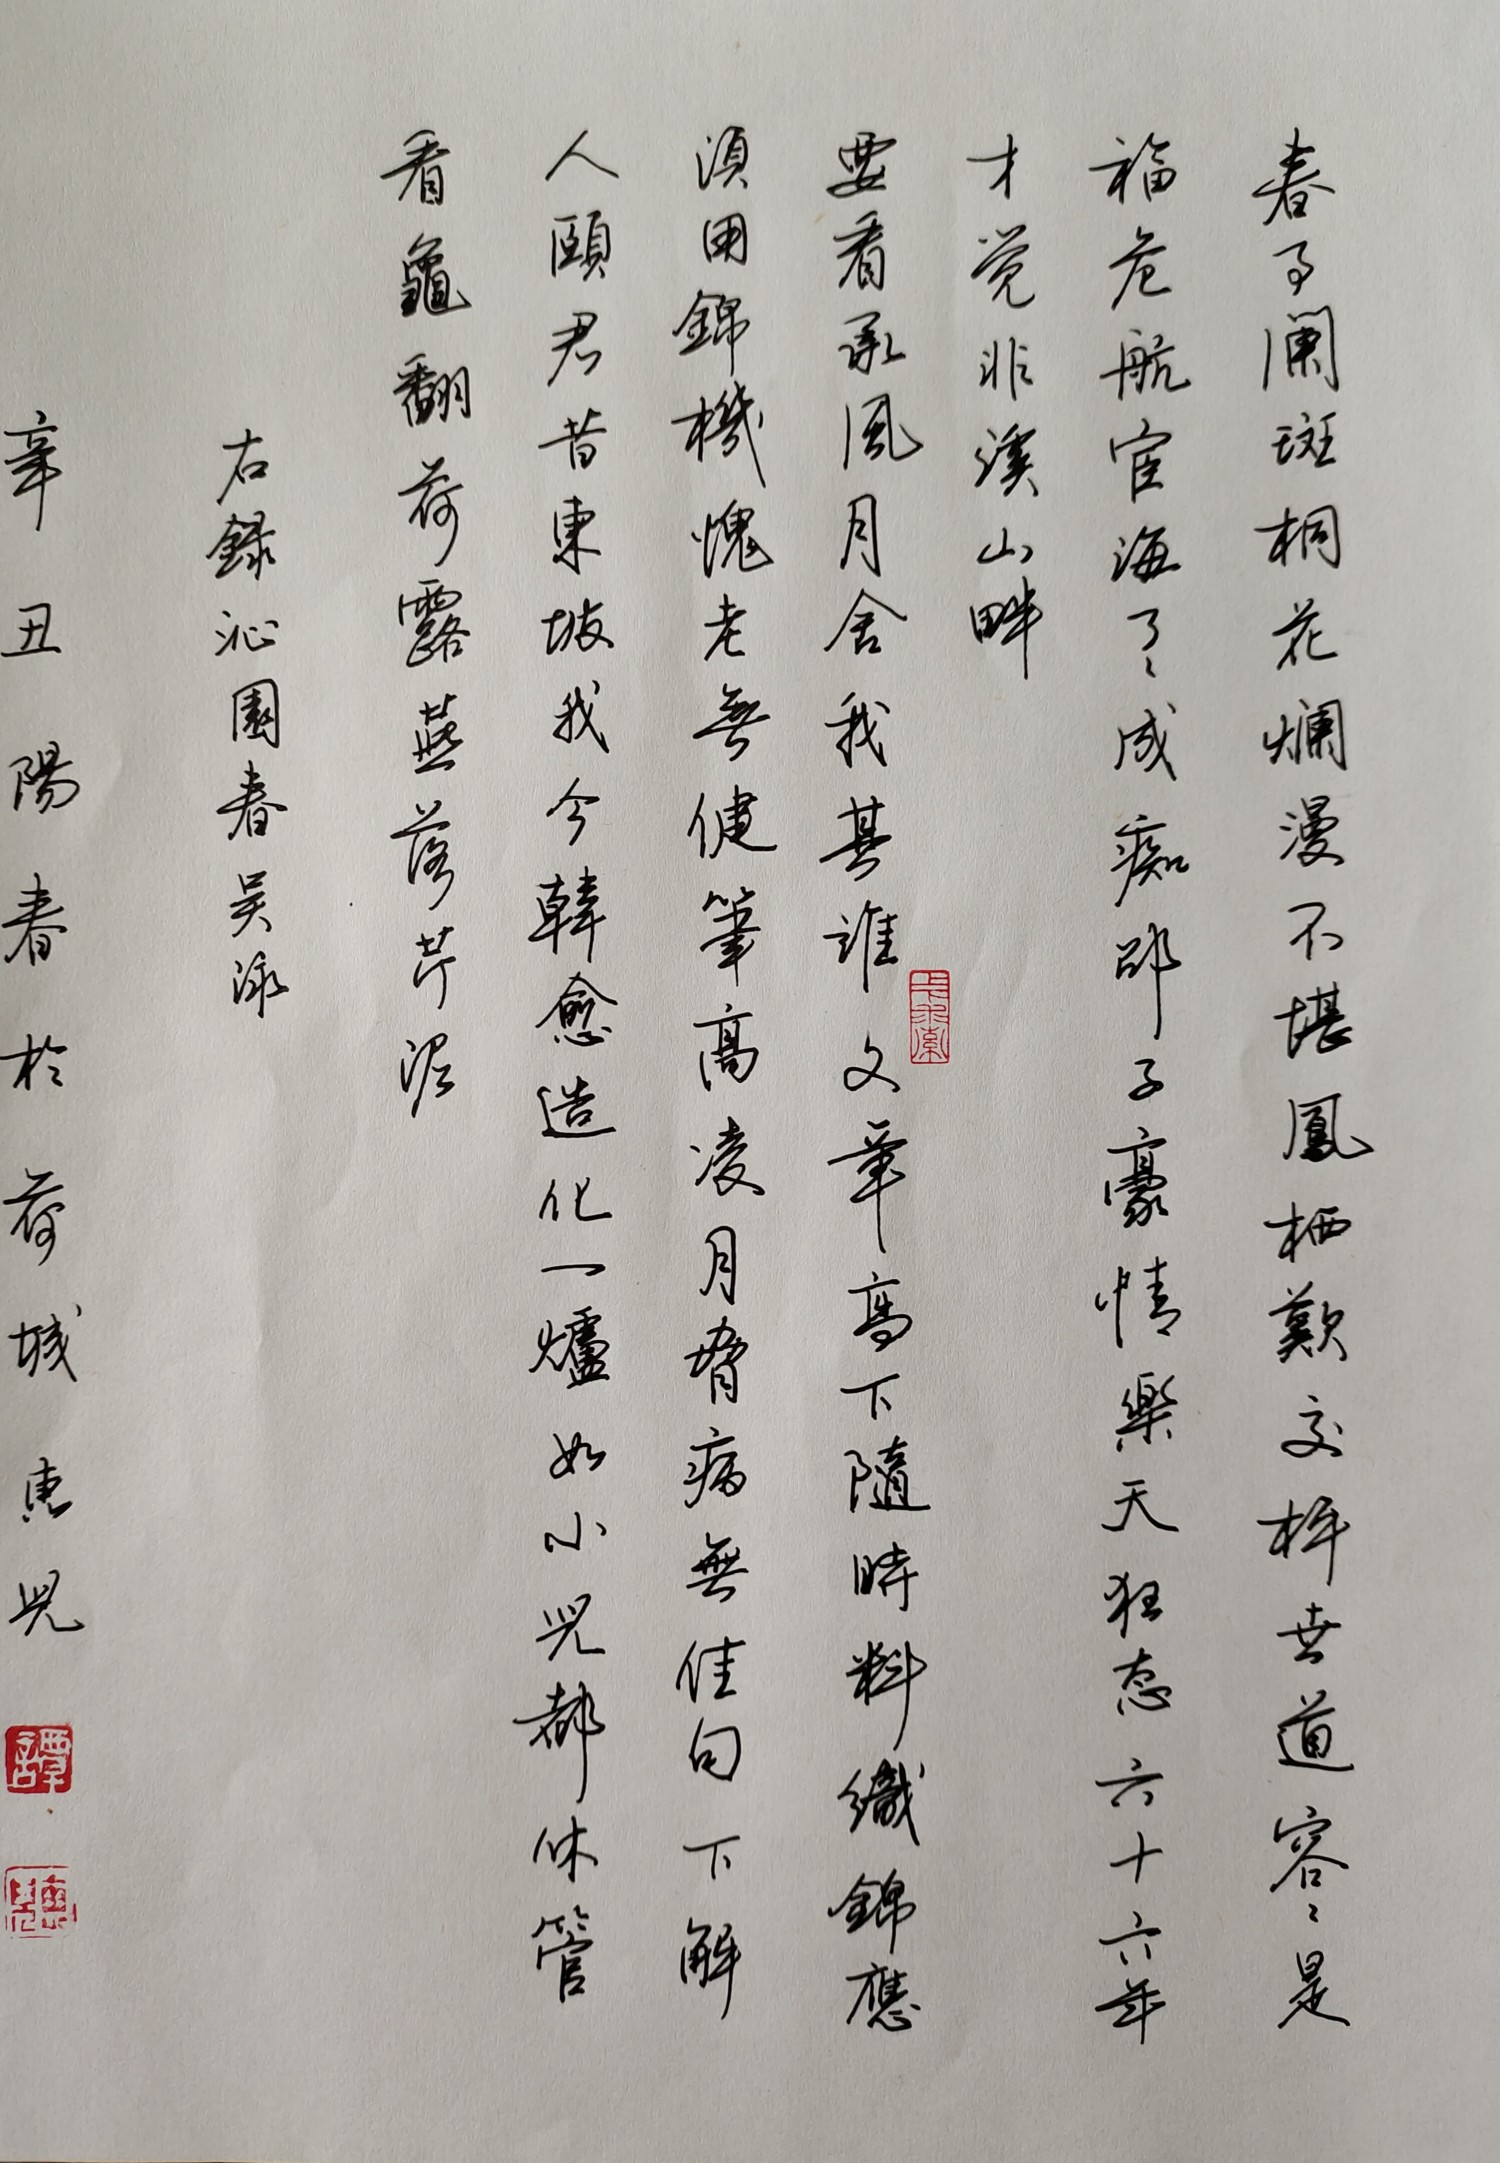 春事闌斑桐花爛漫不堪鳳栖歎交枰世道容〻是
福危航宦海了〻成痴邵子豪情樂天狂态六十六年
才觉非溪山畔
要看承風月舍我其誰文章高下隨時料織錦應
須用錦機愧老無健筆高凌月脅病無佳句下解
人頤君昔東坡我今韓愈造化一爐如小兒都休管
看龜翻荷露燕落芹泥
右録沁園春吴泳
辛丑陽春於荷城惠兒
譚
惠兒